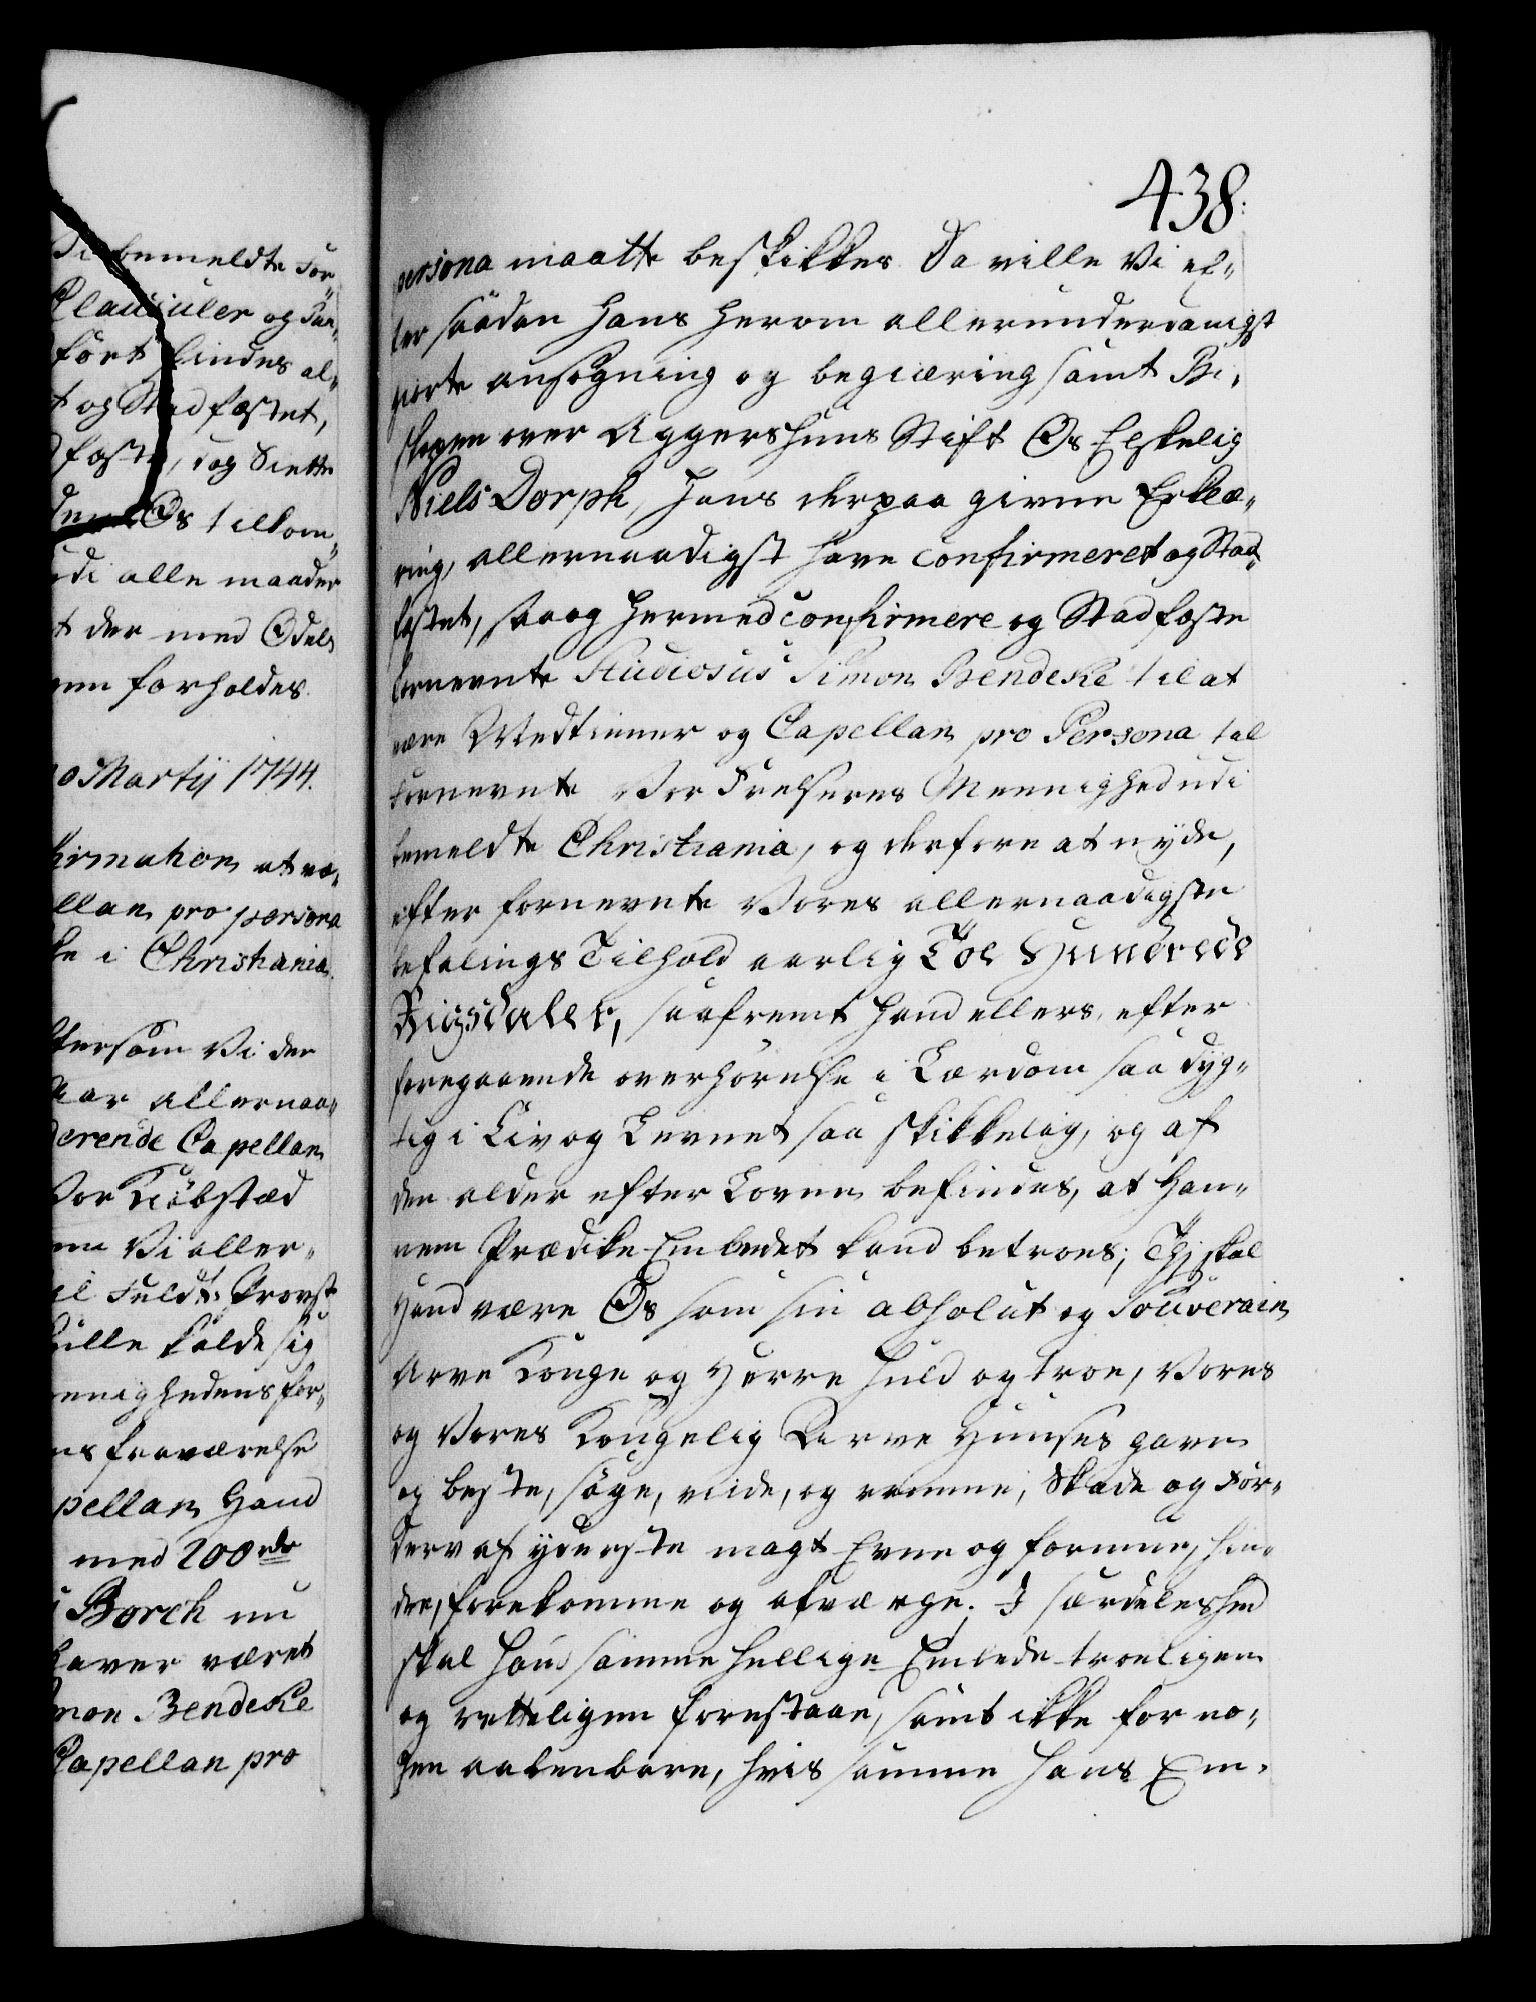 Di bemeldte For-
Clausuler og Pun-
ført findes al-
t og Stadfæstet,
dfæste, dog Siette
Os tilkom-
udi alle maader
t der med Odels
forholdes.
10 Martij 1744.
firmation at væ-
llan pro persona
ke i Christiania.
ftersom Vi der
aar allernaa-
derende Capellan
Vor Kiöbstæd
Vi aller-
il Fuldt. Provst
kulle kalde sig
enighedens for-
ns fraværelse
pellan Hand
med 200 rdr
i Borch nu
haver været
mon Bendeke
Capellan pro
438.
persona maatte beskikkes. Da ville Vi ef-
ter saadan hans herom allerunderdanigst
giorte ansøgning og begiæring samt Bi-
skopen over Aggershuus Stift Os Elskelig
Niels Dorph, hans derpaa givne Erklæ-
ring, allernaadigst have confirmeret og Stad-
fæstet, saa og hermed confirmere og Stadfæste
fornevnte Studiosus Simon Bendeke til at
være Medtiener og Capellan pro Persona til
fornevnte Vor Frelseres Meenighed udi
bemeldte Christiania, og derfore at nyde,
efter fornevnte Vores allernaadigste
befalings Tilhold aarlig Toe Hundrede
Rigsdaler, saafremt hand ellers, efter
foregaaende overhörelse i Lærdom saa dyg-
tig i Liv og Levnet saa skikkelig, og af
den alder efter Loven befindes, at Han-
nem Prædike-Embedet kand betroes; Thj skal
Hand være Os som sin absolut og Souverain
Arve Konge og Herre huld og troe, Vores
og Vores Kongelig Arve Huuses gavn
og beste, söge, viide, og ramme, Skade og For-
derv af yderste magt Evne og formue, hin-
dre, forekomme og afværge. I særdeleshed
skal hand samme hellige Embede troeligen
og retteligen forestaae, samt ikke for no-
gen aabenbare, hvis samme hans Em-